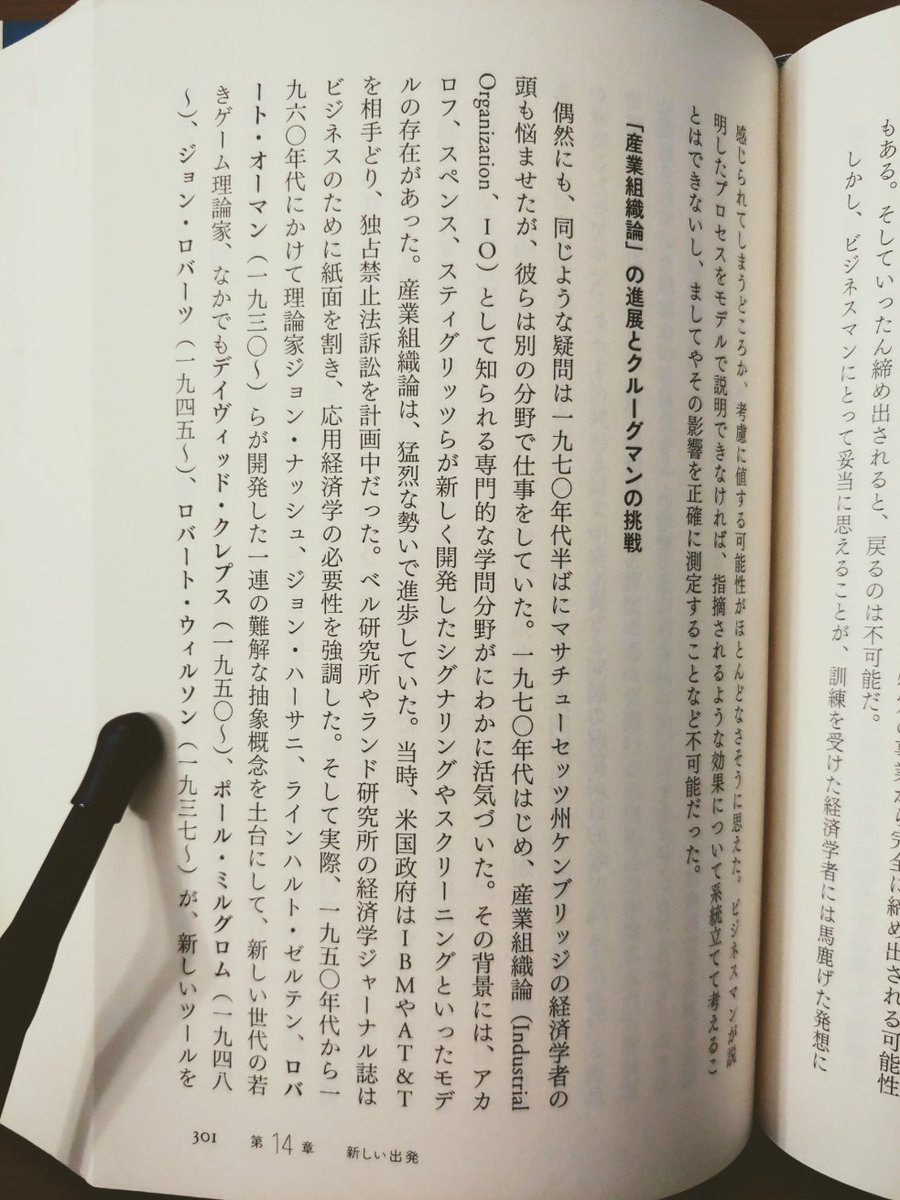 もある。そしていったん締め出されると、戻るのは不可能だ。
しかし、ビジネスマンにとって妥当に思えることが、訓練を受けた経済学者には馬鹿げた発想に
感じられてしまうどころか、考慮に値する可能性がほとんどなさそうに思えた。ビジネスマンが説
明したプロセスをモデルで説明できなければ、指摘されるような効果について系統立てて考えるこ
とはできないし、ましてやその影響を正確に測定することなど不可能だった。
「産業組織論」の進展とクルーグマンの挑戦
偶然にも、同じような疑問は一九七〇年代半ばにマサチューセッツ州ケンブリッジの経済学者の
頭も悩ませたが、彼らは別の分野で仕事をしていた。一九七〇年代はじめ、産業組織論（Industrial
Organization、IO）として知られる専門的な学問分野がにわかに活気づいた。その背景には、アカ
ロフ、スペンス、スティグリッツらが新しく開発したシグナリングやスクリーニングといったモデ
ルの存在があった。産業組織論は、猛烈な勢いで進歩していた。当時、米国政府はIBMやAT&T
を相手どり、独占禁止法訴訟を計画中だった。ベル研究所やランド研究所の経済学ジャーナル誌は
ビジネスのために紙面を割き、応用経済学の必要性を強調した。そして実際、一九五〇年代から一
九六〇年代にかけて理論家ジョン・ナッシュ、ジョン・ハーサニ、ラインハルト・ゼルテン、ロバ
ート・オーマン（一九三〇〜）らが開発した一連の難解な抽象概念を土台にして、新しい世代の若
きゲーム理論家、なかでもデイヴィッド・クレプス（一九五〇〜）、ポール・ミルグロム（一九四八
〜）、ジョン・ロバーツ（一九四五〜）、ロバート・ウィルソン（一九三七〜）が、新しいツールを
301 第14章 新しい出発